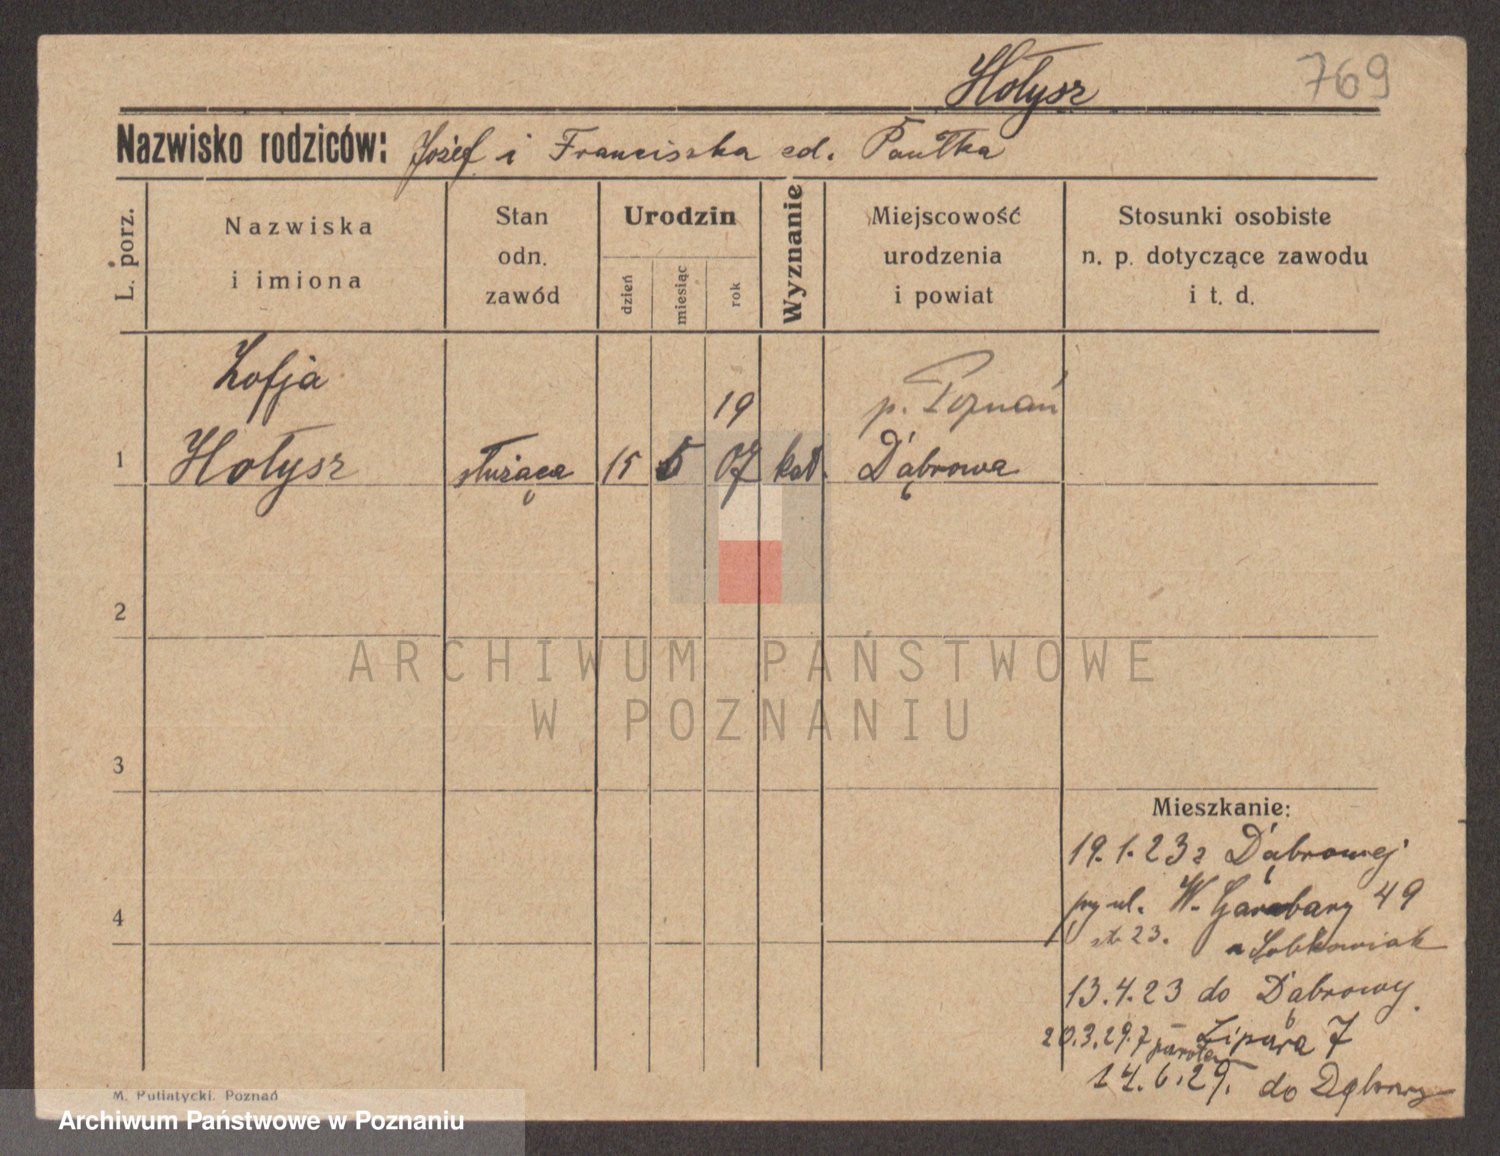 Hołysz 769
Nazwisko rodziców: Józef i Franciszka
L. porz.
Nazwiska i imiona
Stan odn. zawód
Urodzin
dzień
miesiąc
rok
Wyznanie
Miejscowość urodzenia i powiat
Stosunki osobiste n. p. dotyczące zawodu i t. d.
Zofja
19
p. Poznań
1 Hołysz służąca 15 5 07 kat. Dąbrowa
2
ARCHIWUM PAŃSTWOWE
W POZNANIU
3
Mieszkanie:
19.1.23 z Dąbrowej
4
W. Garbary 49
23.
13.4.23 do Dąbrowy
20.3.29. 7
14.6.29. do Dąbrowy
M. Putiatycki, Poznań
Archiwum Państwowe w Poznaniu